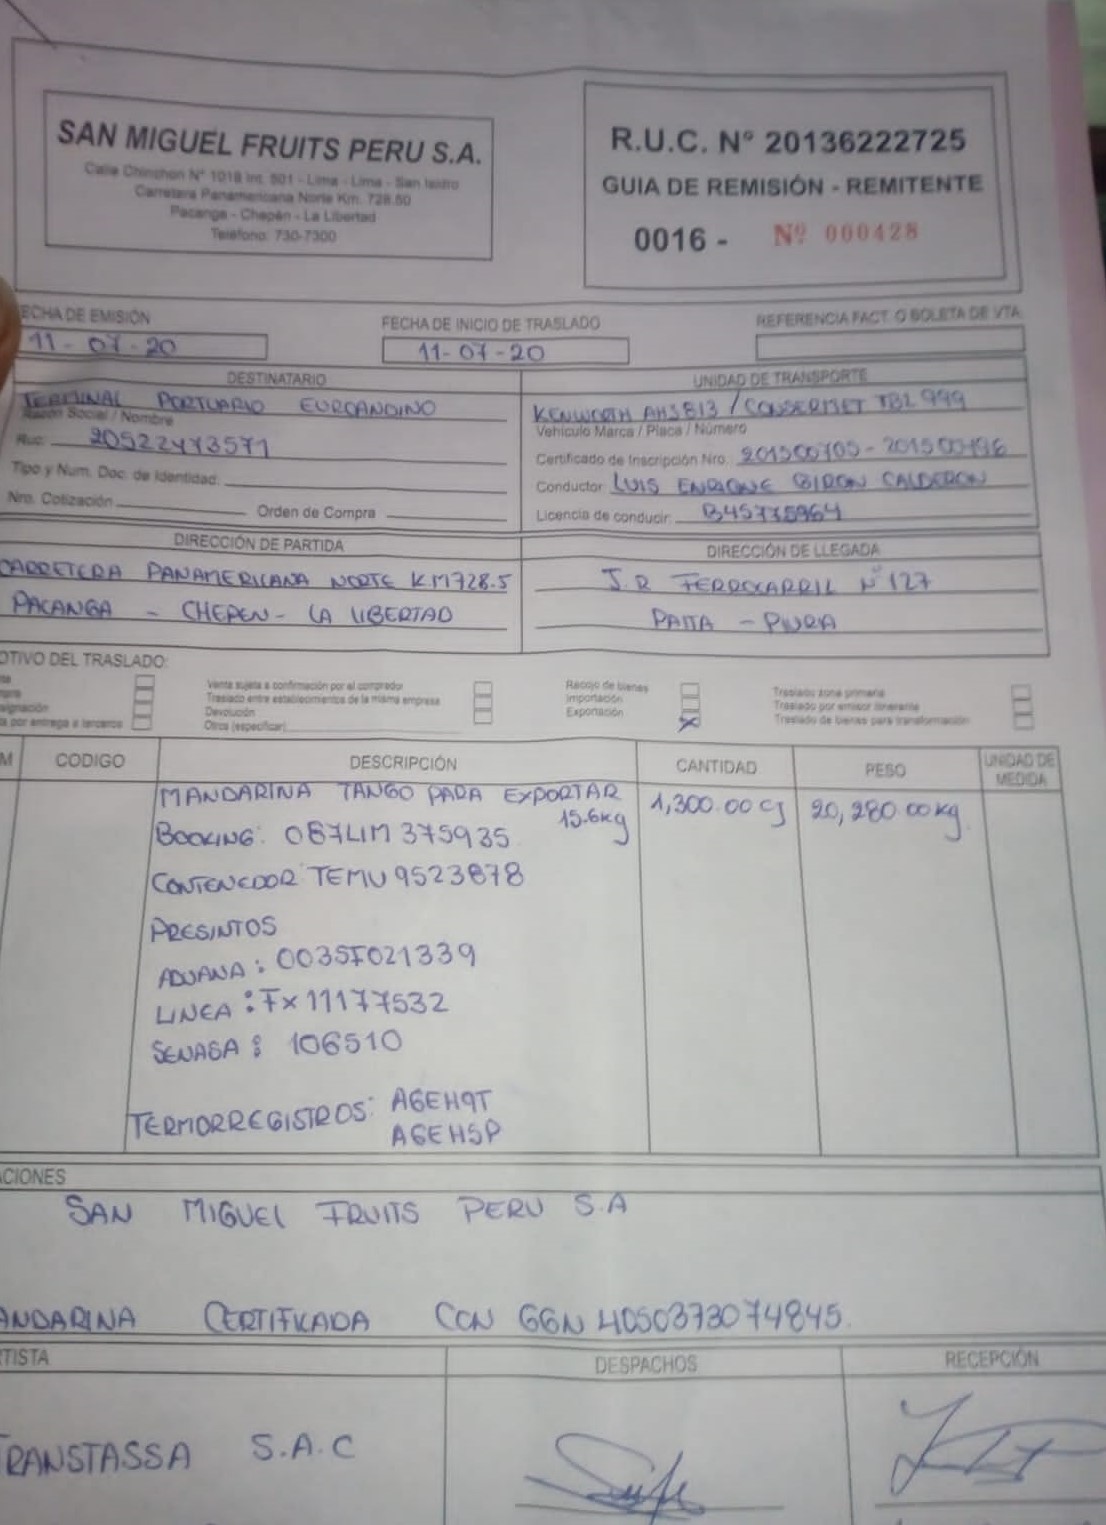 SAN MIGUEL FRUITS PERU S.A.
Calle Chinchon N° 1018 Int. 501 - Lima - Lima - San Isidro
Carretera Panamericana Norte Km. 728.50
Pacanga - Chepén - La Libertad
Teléfono: 730-7300
R.U.C. N° 20136222725
GUIA DE REMISIÓN - REMITENTE
0016 - Nº 000428
ECHA DE EMISIÓN
11-07-20
FECHA DE INICIO DE TRASLADO
11-07-20
REFERENCIA FACT. O BOLETA DE VTA.
DESTINATARIO
TERMINAL PORTUARIO EUROANDINO
Razón Social / Nombre
Ruc: 20522473571
Tipo y Num. Doc. de Identidad:
Nro. Cotización Orden de Compra
UNIDAD DE TRANSPORTE
KENWORTH AHS813 / CONSERMET TBL 999
Vehículo Marca / Placa / Número
Certificado de Inscripción Nro.: 201500705 - 201500496
Conductor: LUIS ENRIQUE GIRON CALDERON
Licencia de conducir: B45775964
DIRECCIÓN DE PARTIDA
CARRETERA PANAMERICANA NORTE KM728.5
PACANGA - CHEPEN - LA LIBERTAD
DIRECCIÓN DE LLEGADA
J.R FERROCARRIL N°127
PAITA - PIURA
OTIVO DEL TRASLADO:
Venta sujeta a confirmación por el comprador
Traslado entre establecimientos de la misma empresa
Devolución
Otros (especificar)
a por entrega a terceros
Recojo de bienes
Importación
Exportación X
Traslado zona primaria
Traslado por emisor itinerante
Traslado de bienes para transformación
M CODIGO DESCRIPCIÓN CANTIDAD PESO UNIDAD DE MEDIDA
MANDARINA TANGO PARA EXPORTAR 15.6kg 1,300.00 cj 20,280.00 kg.
BOOKING: 087LIM375935
CONTENEDOR: TEMU 9523878
PRESINTOS
ADUANA: 003SF021339
LINEA: Fx11177532
SENASA: 106510
TERMORREGISTROS: AGEH9T
AGEHSP
ACIONES
SAN MIGUEL FRUITS PERU S.A
ANDARINA CERTIFICADA CON GGN 4050373074845.
RTISTA
TRANSTASSA S.A.C
DESPACHOS
RECEPCIÓN